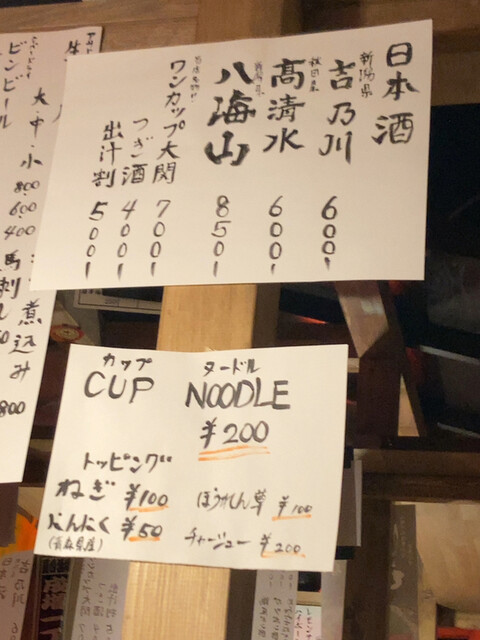 日本酒
新潟県
吉乃川 600.-
秋田県
高清水 600.-
新潟県
八海山 850.-
ワンカップ大関 700.-
つぎ酒 400.-
出汁割 500.-
生
大・中・小
800
600
400
ビンビール
煮込み
馬刺し
800
カップ ヌードル
CUP NOODLE
¥200
トッピング
ねぎ ¥100
ほうれん草 ¥100
にんにく ¥50
(青森県産)
チャーシュー ¥200